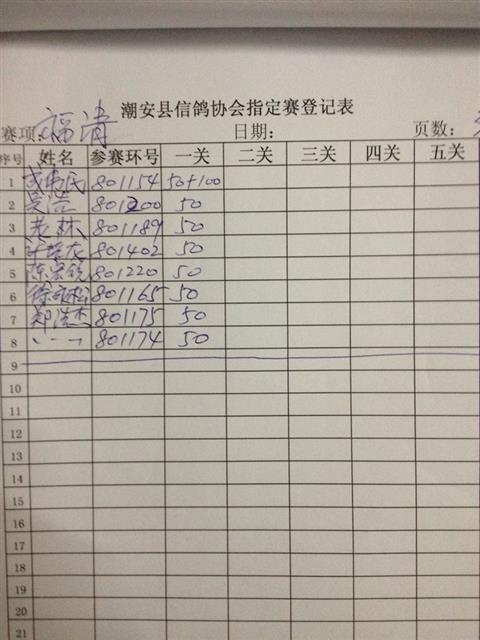 潮安县信鸽协会指定赛登记表
赛项: 福清 日期: 页数:
序号 姓名 参赛环号 一关 二关 三关 四关 五关
1 801154 50+100
2 吴浩 801200 50
3 老林 801189 50
4 801402 50
5 陈宏锐 801220 50
6 801165 50
7 郑浩杰 801175 50
8 801174 50
9
10
11
12
13
14
15
16
17
18
19
20
21